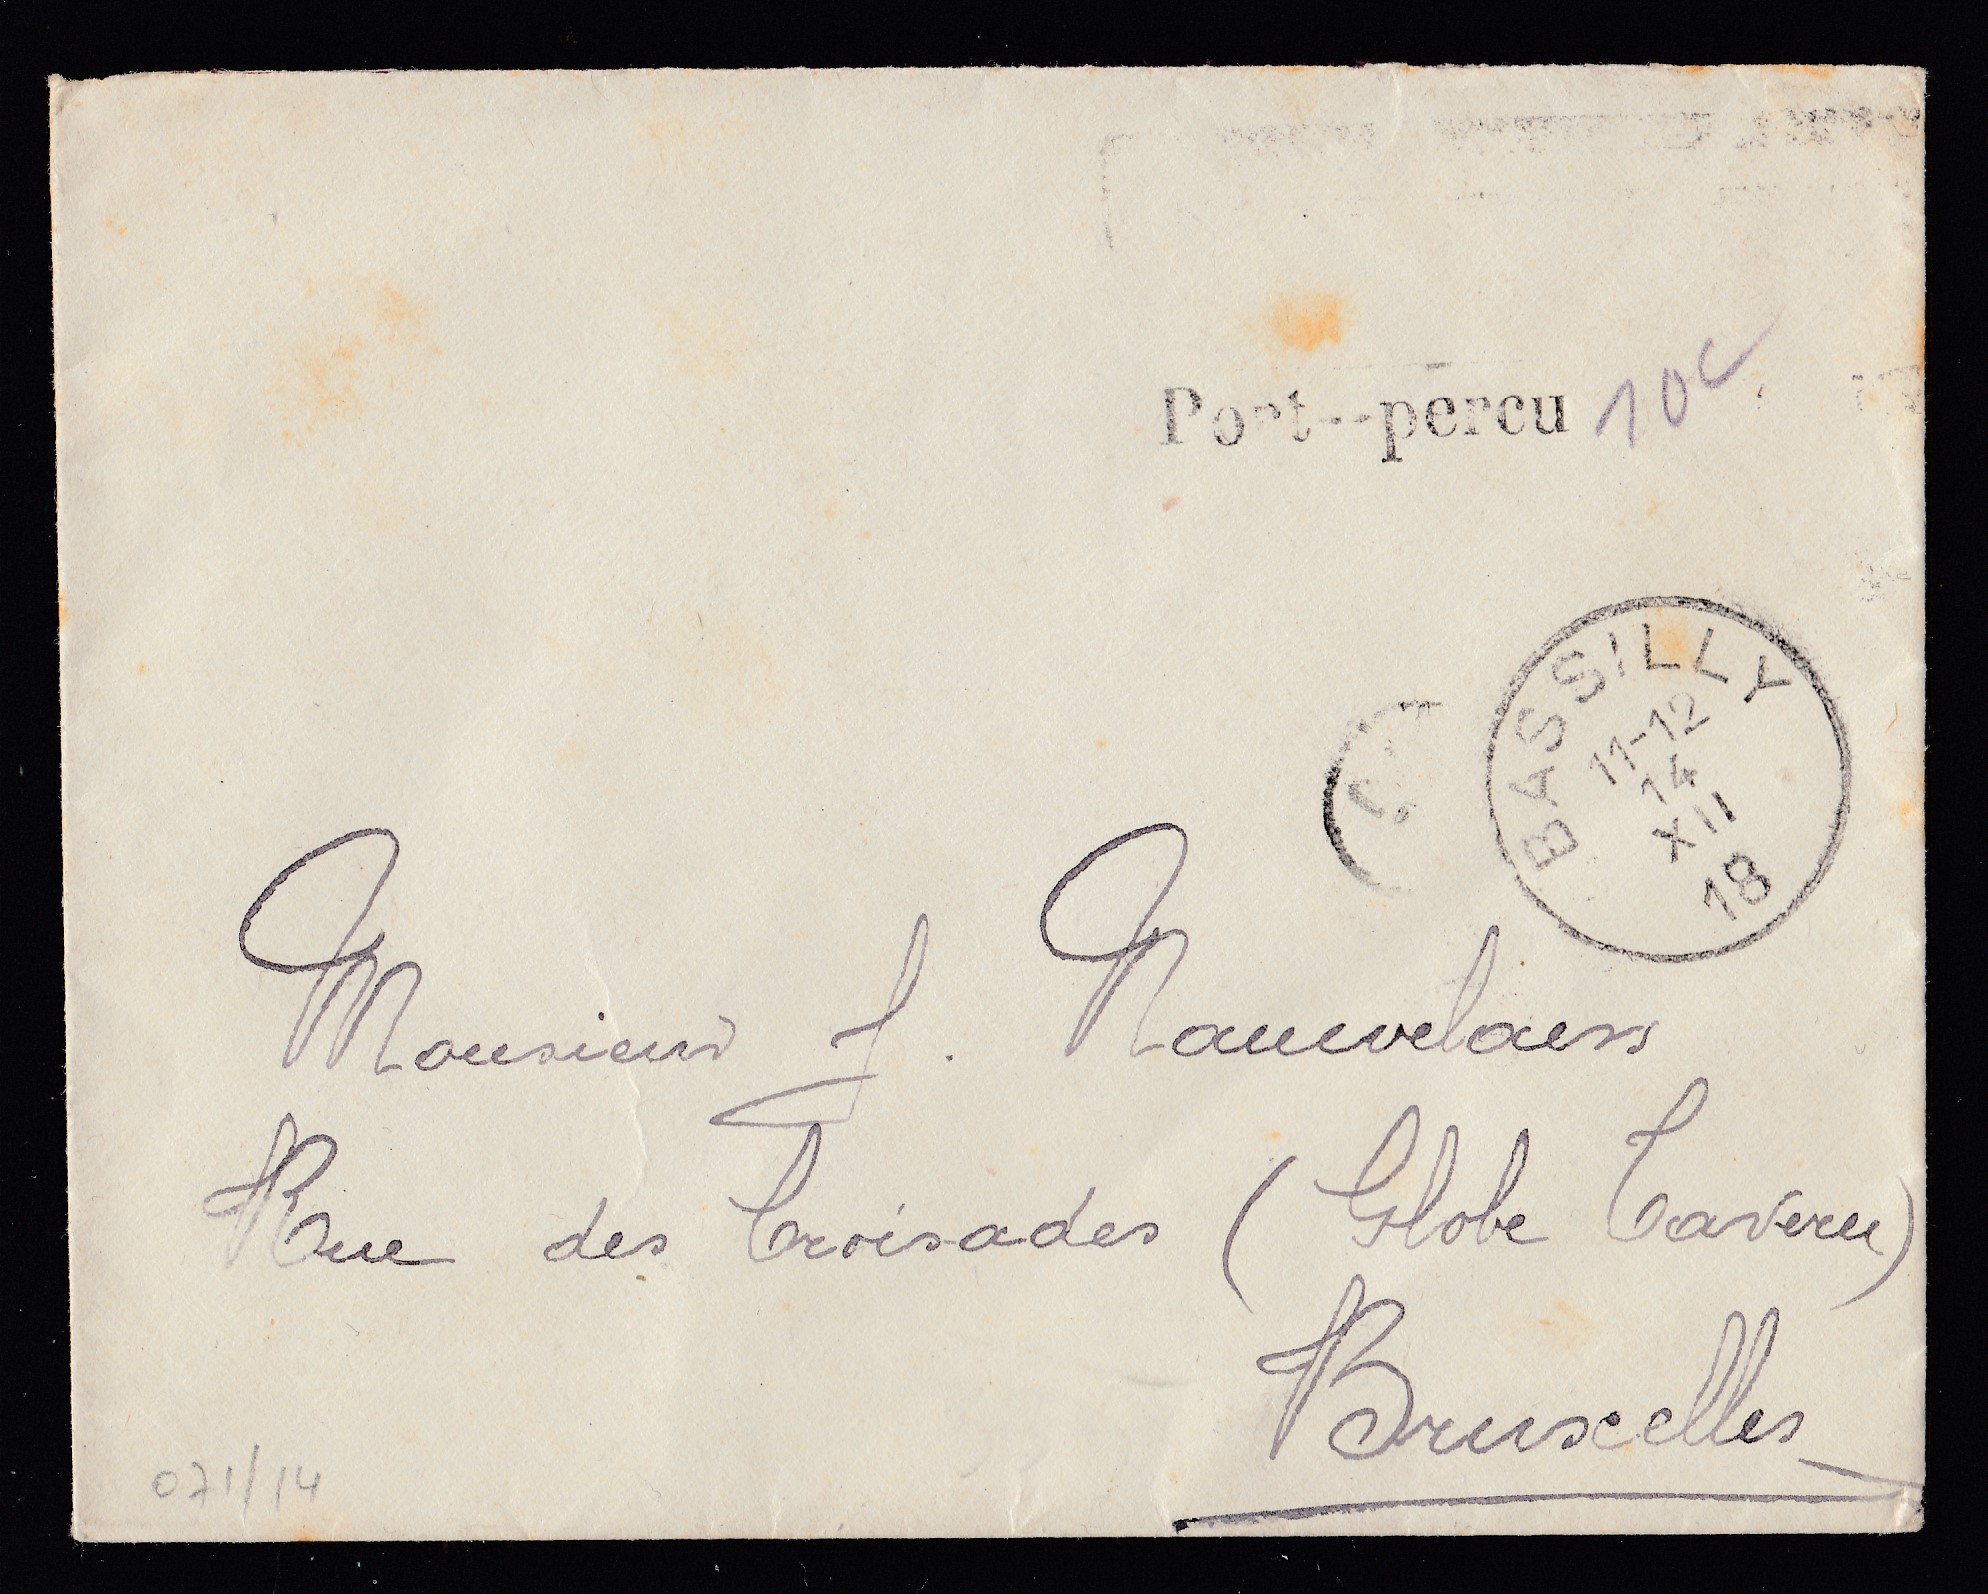 Port--percu 10c
BASSILLY
11-12
14
XII
18
Monsieur J. Nauwelaers
Rue des Croisades (Globe Tavern)
Bruxelles
071/14